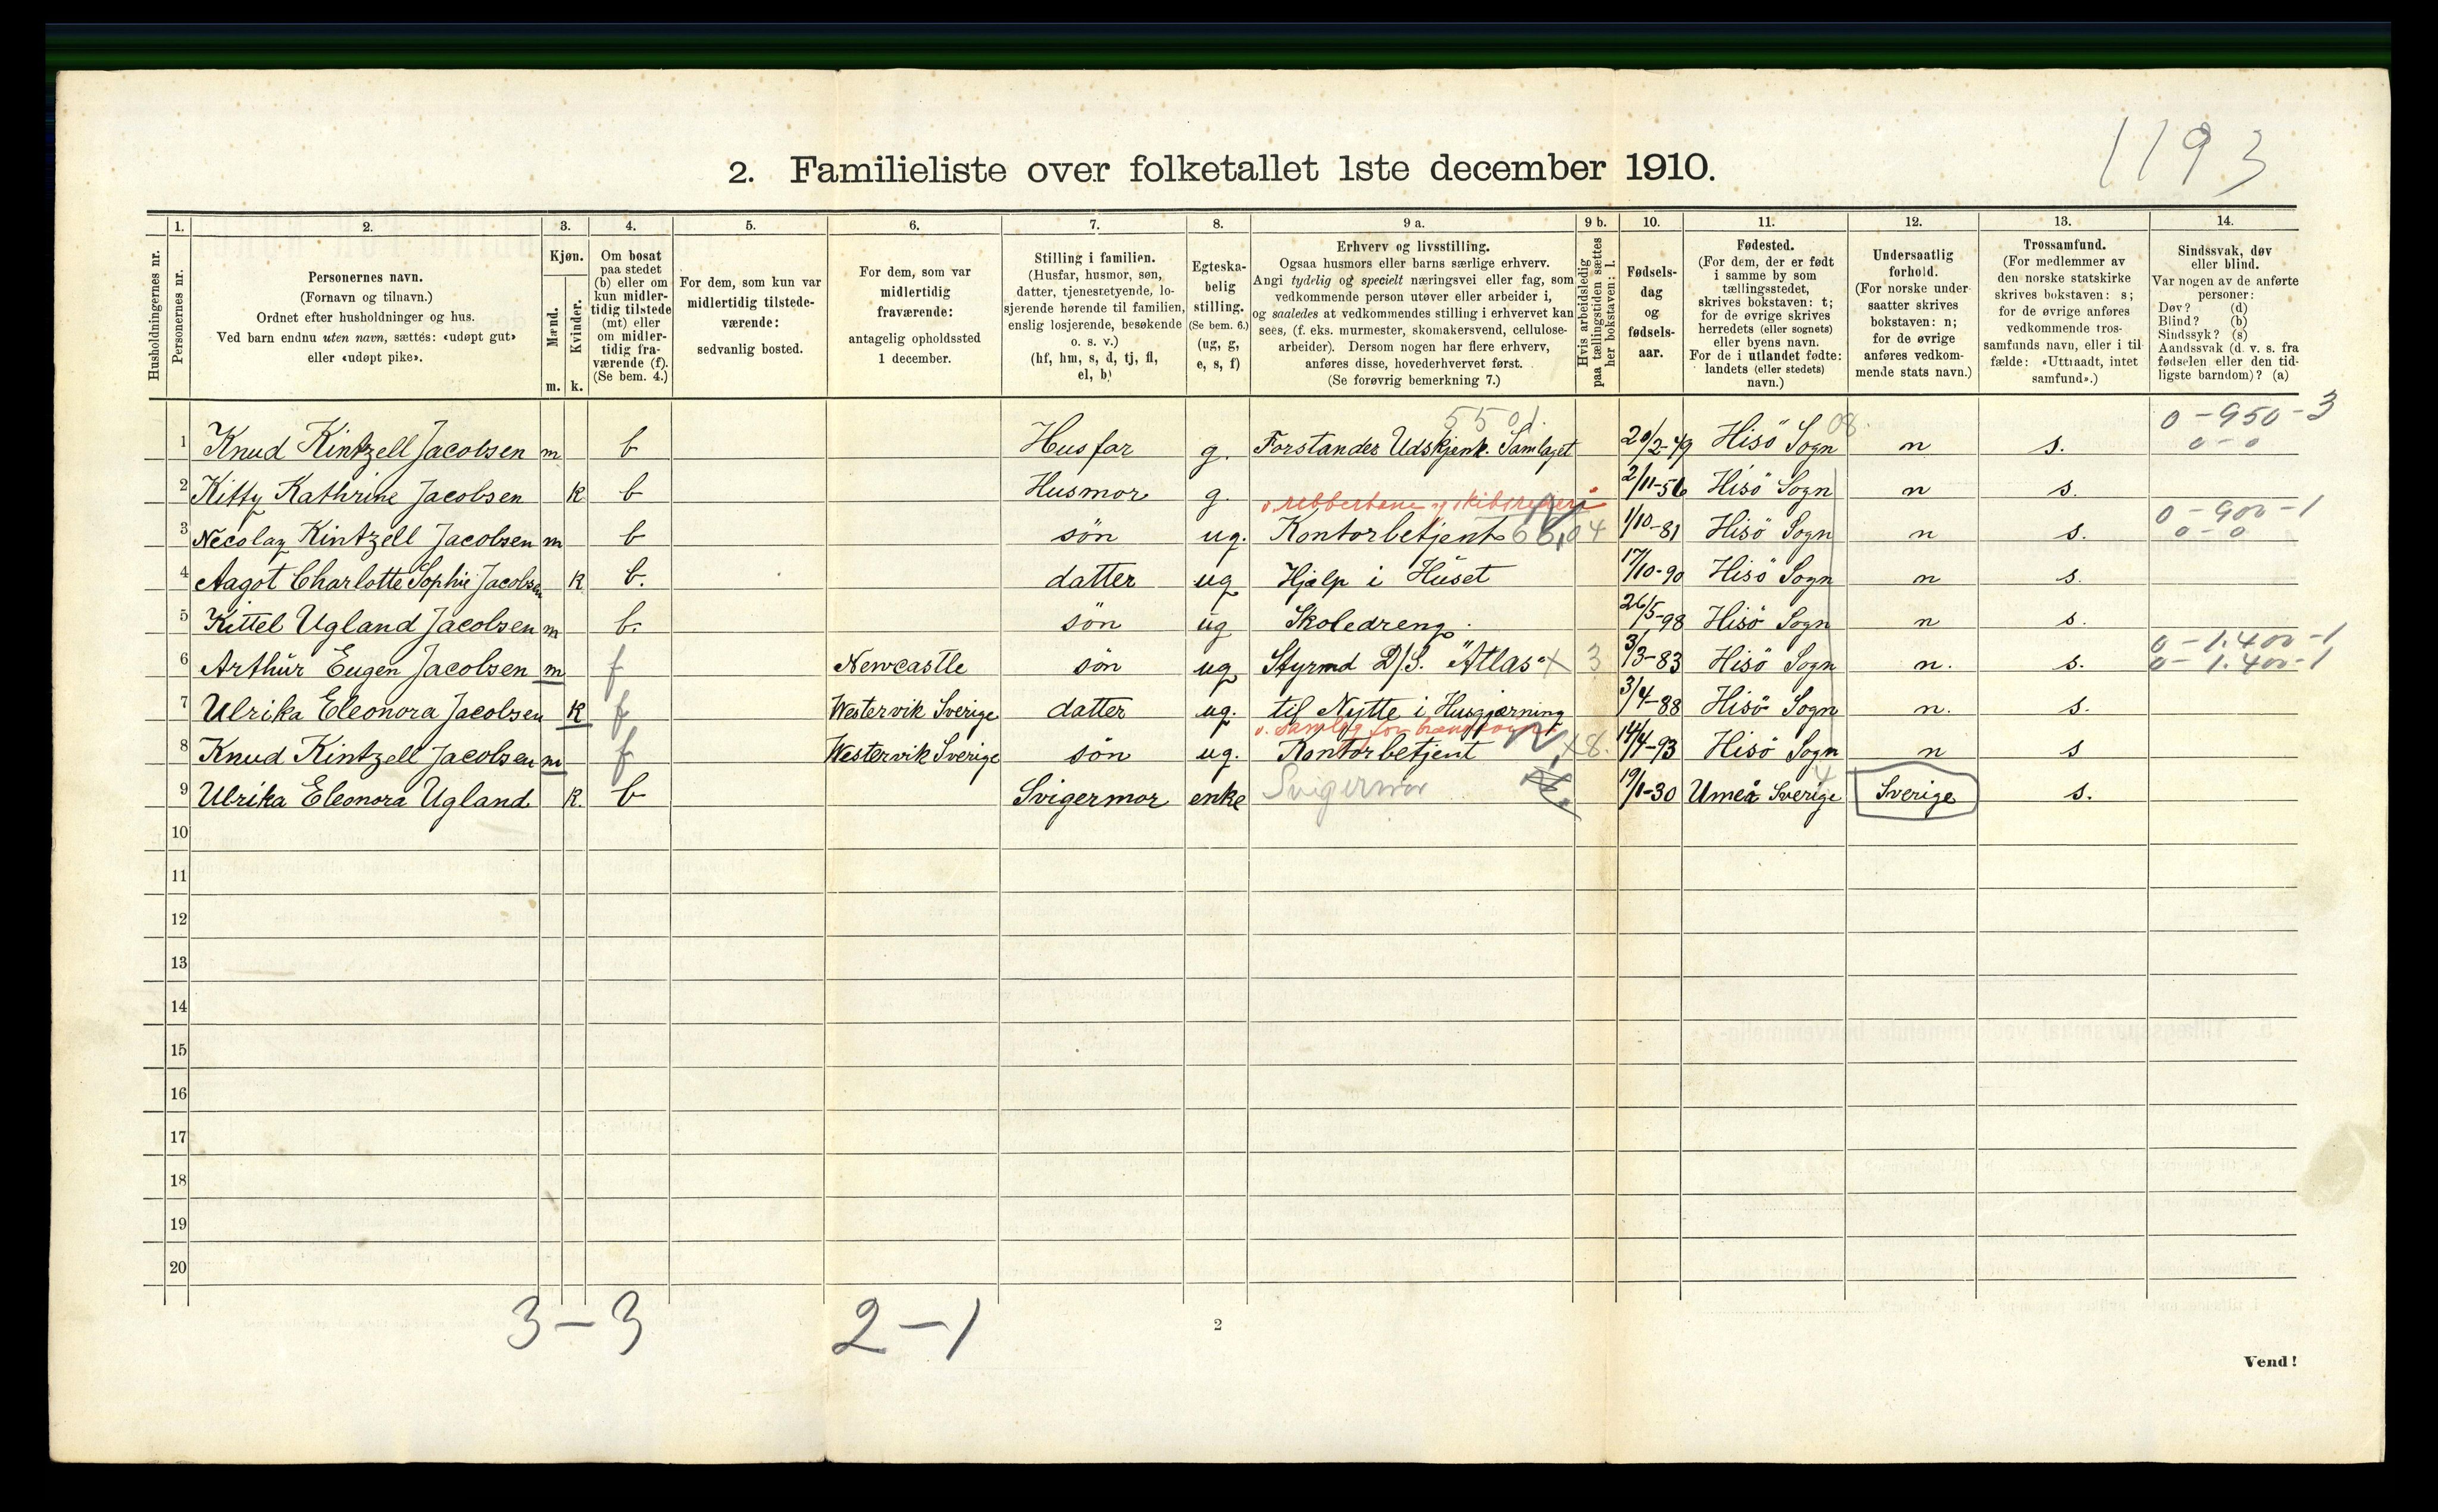 1193
2. Familieliste over folketallet 1ste december 1910.
Husholdningernes nr.
1. Personernes nr.
2. Personernes navn.
(Fornavn og tilnavn.)
Ordnet efter husholdninger og hus.
Ved barn endnu uten navn, sættes: «udøpt gut»
eller «udøpt pike».
3. Kjøn.
Mænd. m.
Kvinder. k.
4. Om bosat
paa stedet
(b) eller om
kun midler-
tidig tilstede
(mt) eller
om midler-
tidig fra-
værende (f).
(Se bem. 4.)
5. For dem, som kun var
midlertidig tilstede-
værende:
sedvanlig bosted.
6. For dem, som var
midlertidig
fraværende:
antagelig opholdssted
1 december.
7. Stilling i familien.
(Husfar, husmor, søn,
datter, tjenestetyende, lo-
sjerende hørende til familien,
enslig losjerende, besøkende
o. s. v.)
(hf, hm, s, d, tj, fl,
el, b)
8. Egteska-
belig
stilling.
(Se bem. 6.)
(ug, g,
e, s, f)
9 a. Erhverv og livsstilling.
Ogsaa husmors eller barns særlige erhverv.
Angi tydelig og specielt næringsvei eller fag, som
vedkommende person utøver eller arbeider i,
og saaledes at vedkommendes stilling i erhvervet kan
sees, (f. eks. murmester, skomakersvend, cellulose-
arbeider). Dersom nogen har flere erhverv,
anføres disse, hovederhvervet først.
(Se forøvrig bemerkning 7.)
9 b. Hvis arbeidsledig
paa tællingstiden sættes
her bokstaven: l.
10. Fødsels-
dag
og
fødsels-
aar.
11. Fødested.
(For dem, der er født
i samme by som
tællingsstedet,
skrives bokstaven: t;
for de øvrige skrives
herredets (eller sognets)
eller byens navn.
For de i utlandet fødte:
landets (eller stedets)
navn.)
12. Undersaatlig
forhold.
(For norske under-
saatter skrives
bokstaven: n;
for de øvrige
anføres vedkom-
mende stats navn.)
13. Trossamfund.
(For medlemmer av
den norske statskirke
skrives bokstaven: s;
for de øvrige anføres
vedkommende tros-
samfunds navn, eller i til-
fælde: «Uttraadt, intet
samfund».)
14. Sindssvak, døv
eller blind.
Var nogen av de anførte
personer:
Døv? (d)
Blind? (b)
Sindssyk? (s)
Aandssvak (d. v. s. fra
fødselen eller den tid-
ligste barndom)? (a)
5501. 08. 0-950-3
1 Knud Kintzell Jacobsen m b Husfar g. Forstander Udskjenk. Samlaget 20/2-49 Hisö Sogn n s. 0-0
2 Kitty Kathrine Jacobsen k b Husmor g. 2/11-56 Hisö Sogn n s.
0-900-1
3 Necolay Kintzell Jacobsen m b søn ug. Kontorbetjent 04 1/10-81 Hisö Sogn n s. 0-0
4 Aagot Charlotte Sophie Jacobsen k b. datter ug Hjælp i Huset 17/10-90 Hisö Sogn n s.
5 Kittel Ugland Jacobsen m b. søn ug Skoledreng. 26/5-98 Hisö Sogn n s.
0-1.400-1
6 Arthur Eugen Jacobsen m f Newcastle søn ug Styrmd D/S. "Atlas" x 3 3/3-83 Hisö Sogn n. s. 0-1.400-1
7 Ulrika Eleonora Jacobsen k f Westervik Sverige datter ug. til Nytte i Husgjærning 3/4-88 Hisö Sogn n. s.
8 Knud Kintzell Jacobsen m f Westervik Sverige søn ug. Kontorbetjent x 8. 14/4-93 Hisö Sogn n s
9 Ulrika Eleonora Ugland k. b Svigermor enke Svigermor 19/1-30 Umeå Sverige Sverige s.
10
11
12
13
14
15
16
17
18
19
20
3-3 2-1
2
Vend!